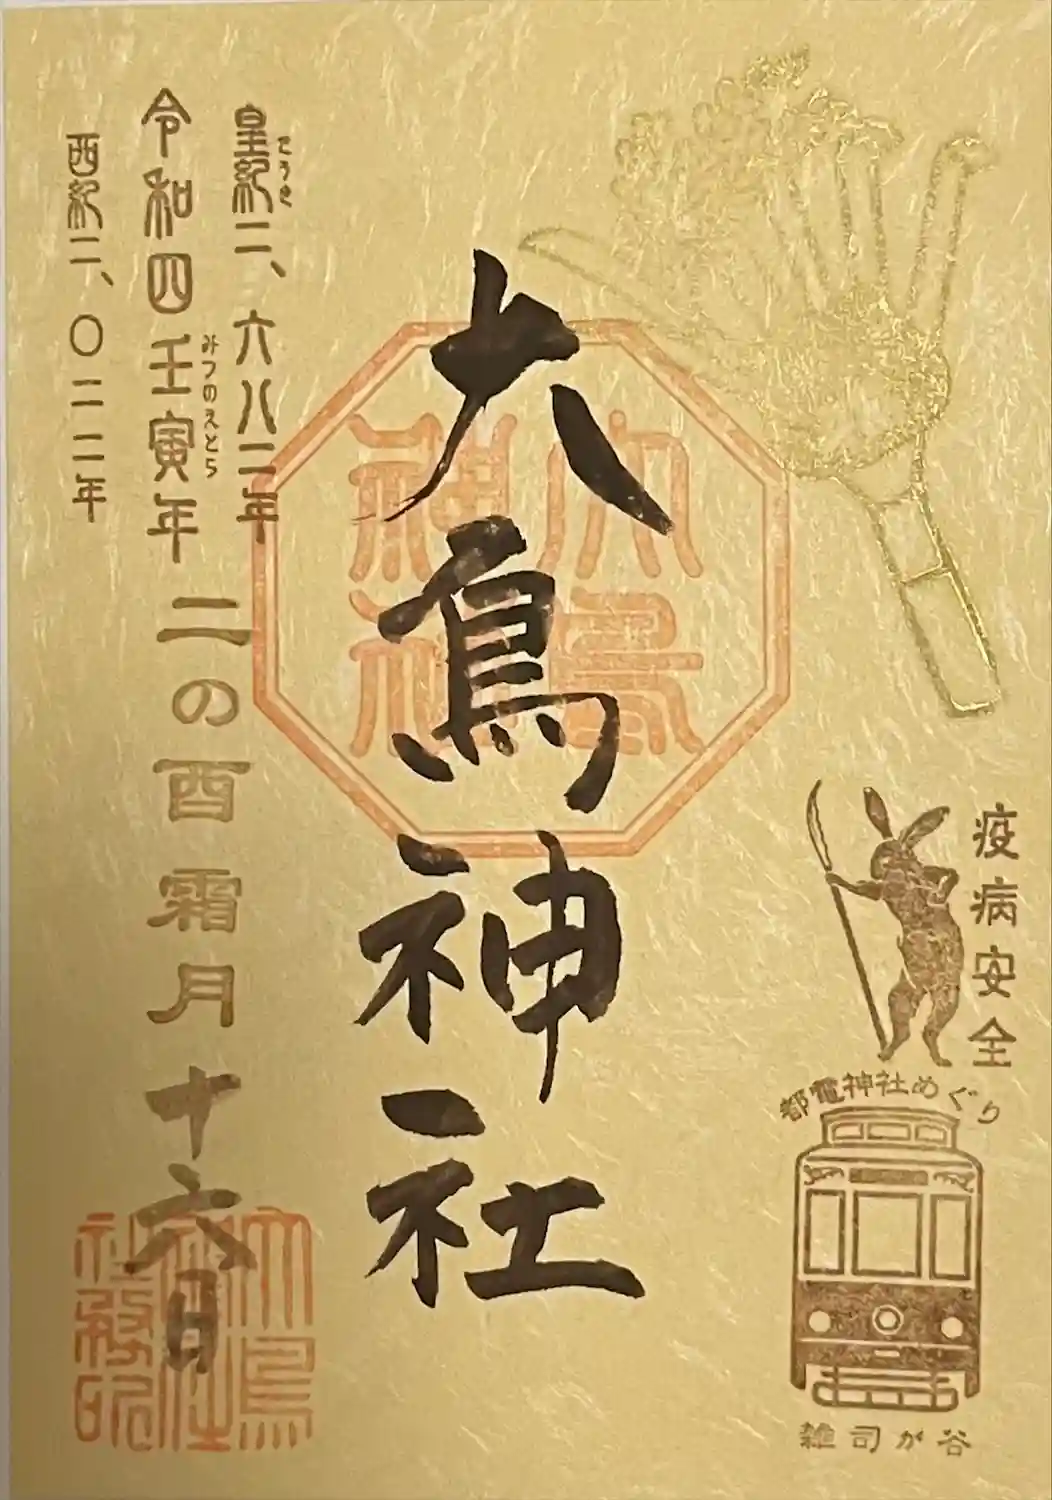 疫病安全
都電神社めぐり
雑司が谷
大鳥神社
大鳥
神社
皇紀二、六八二年
こうき
令和四壬寅年
みづのえとら
二の酉霜月十六日
西紀二、〇二二年
大鳥
神社
社務印